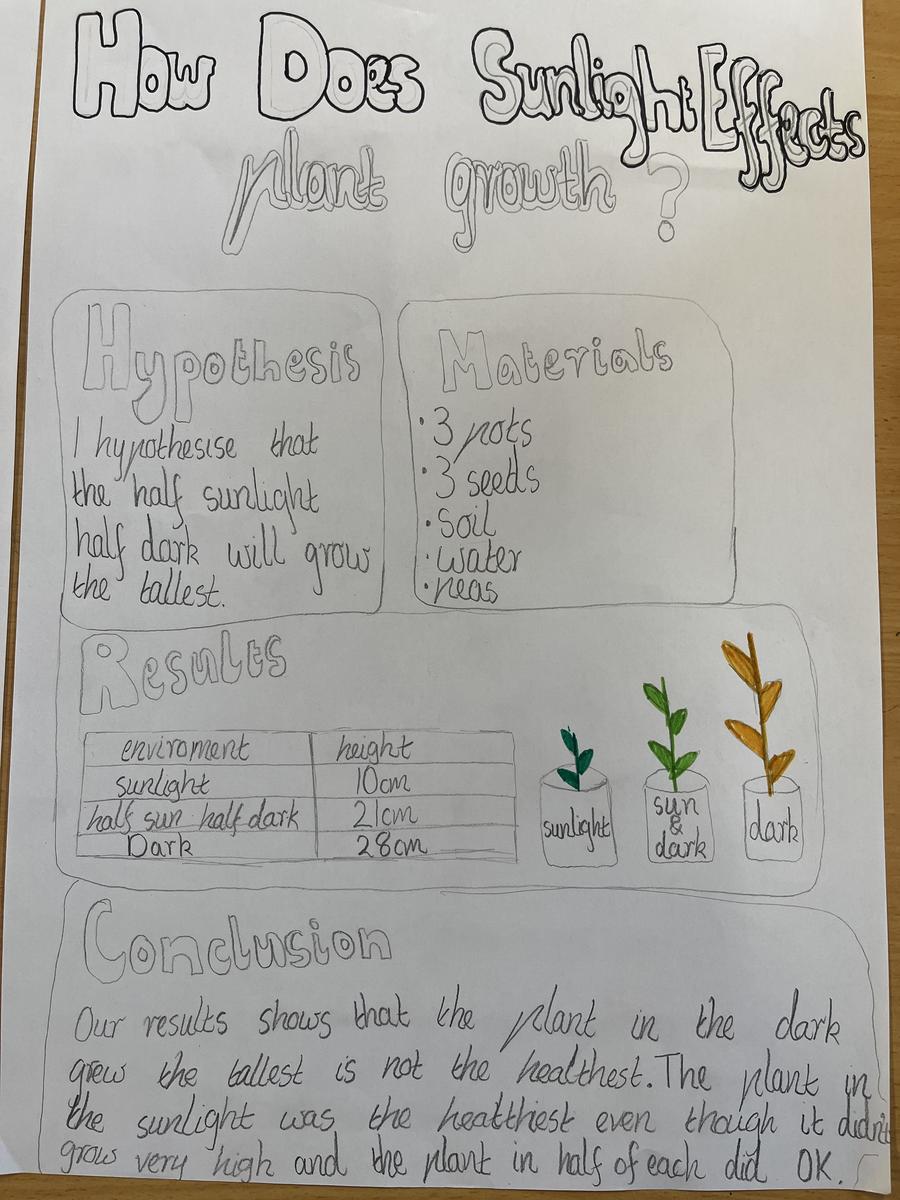 How Does Sunlight Effects
plant growth?
Hypothesis
I hypothesise that
the half sunlight
half dark will grow
the tallest.
Materials
·3 pots
·3 seeds
·soil
·water
·peas
Results
enviroment height
sunlight 10cm
half sun half dark 21cm
Dark 28cm
sunlight
sun
&
dark
dark
Conclusion
Our results shows that the plant in the dark
grew the tallest is not the healthest. The plant in
the sunlight was the healthiest even though it didn't
grow very high and the plant in half of each did OK.